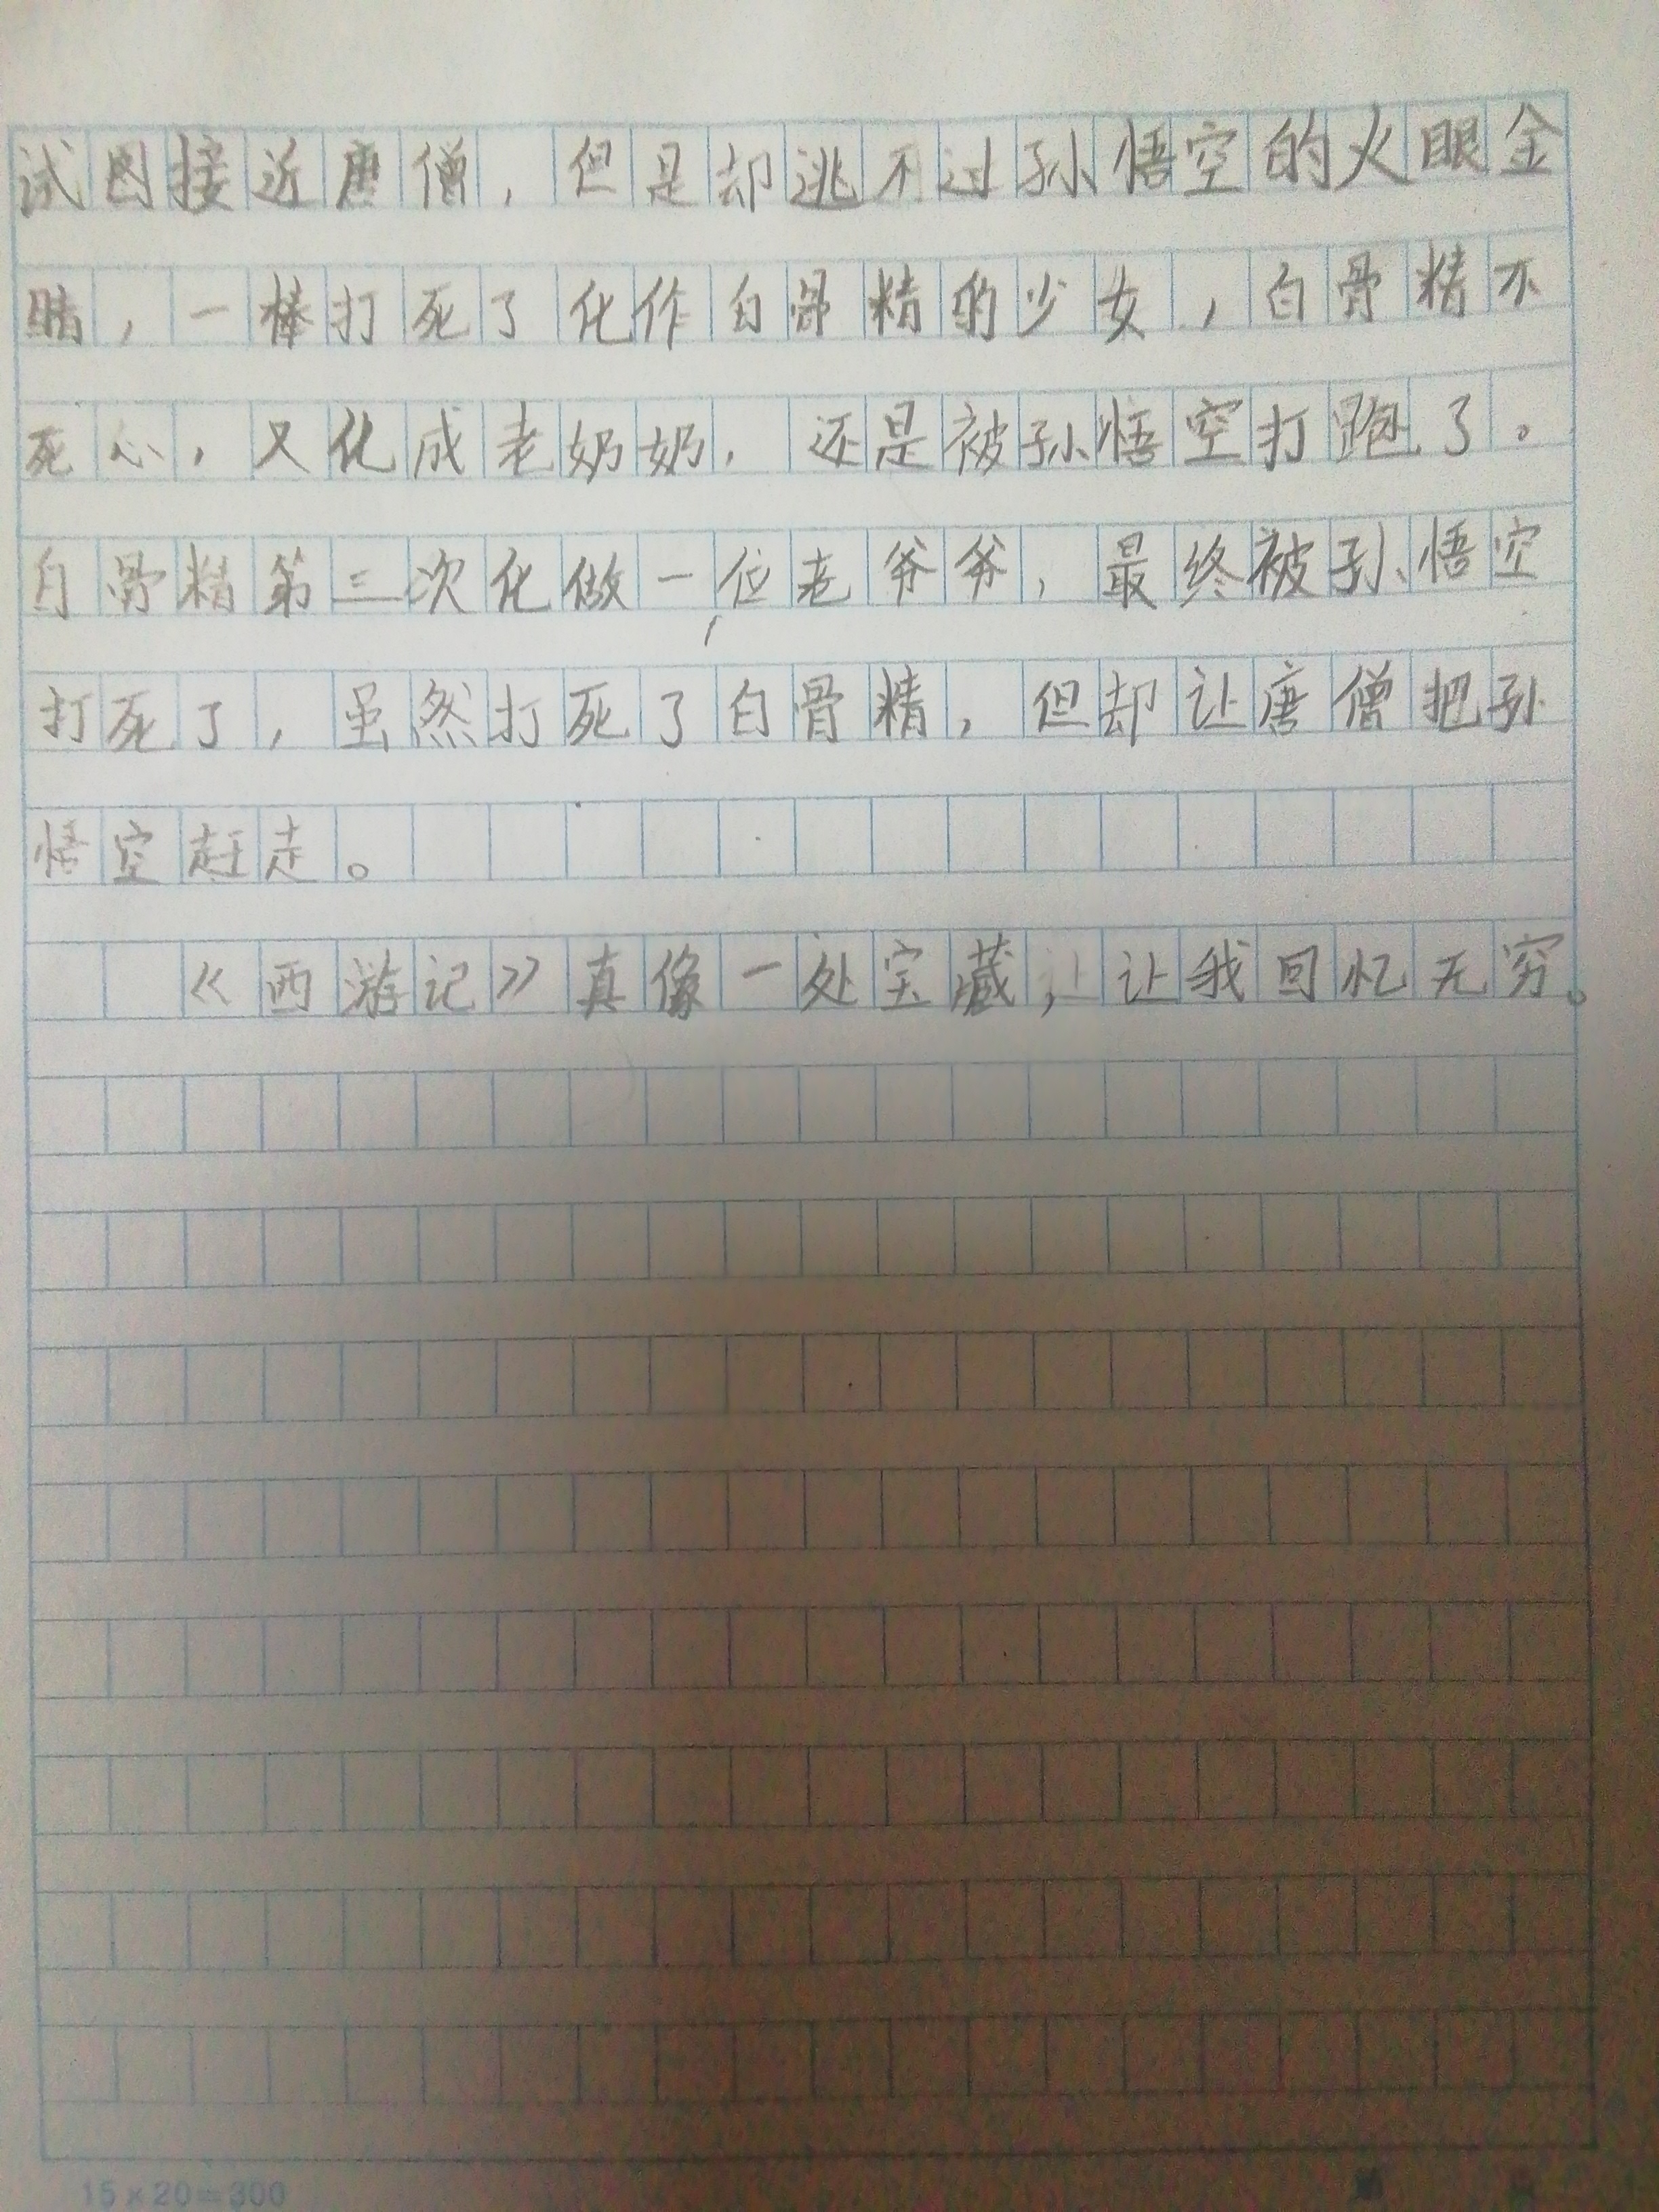 试图接近唐僧，但是却逃不过孙悟空的火眼金
睛，一棒打死了化作白骨精的少女，白骨精不
死心，又化成老奶奶，还是被孙悟空打跑了。
白骨精第三次化做一位老爷爷，最终被孙悟空
打死了，虽然打死了白骨精，但却让唐僧把孙
悟空赶走。
《西游记》真像一处宝藏，让我回忆无穷。
15×20=300